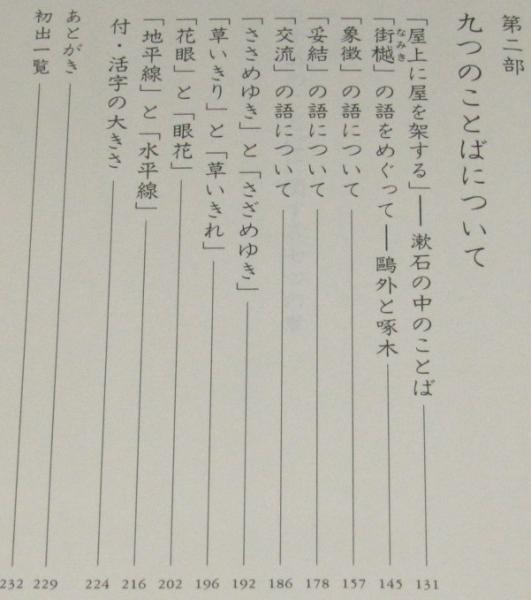 第二部
九つのことばについて
「屋上に屋を架する」── 漱石の中のことば 131
「街樾」の語をめぐって ── 鷗外と啄木 145
なみき
「象徴」の語について 157
「妥結」の語について 178
「交流」の語について 186
「ささめゆき」と「さざめゆき」 192
「草いきり」と「草いきれ」 196
「花眼」と「眼花」 202
「地平線」と「水平線」 216
付・活字の大きさ 224
あとがき 229
初出一覧 232